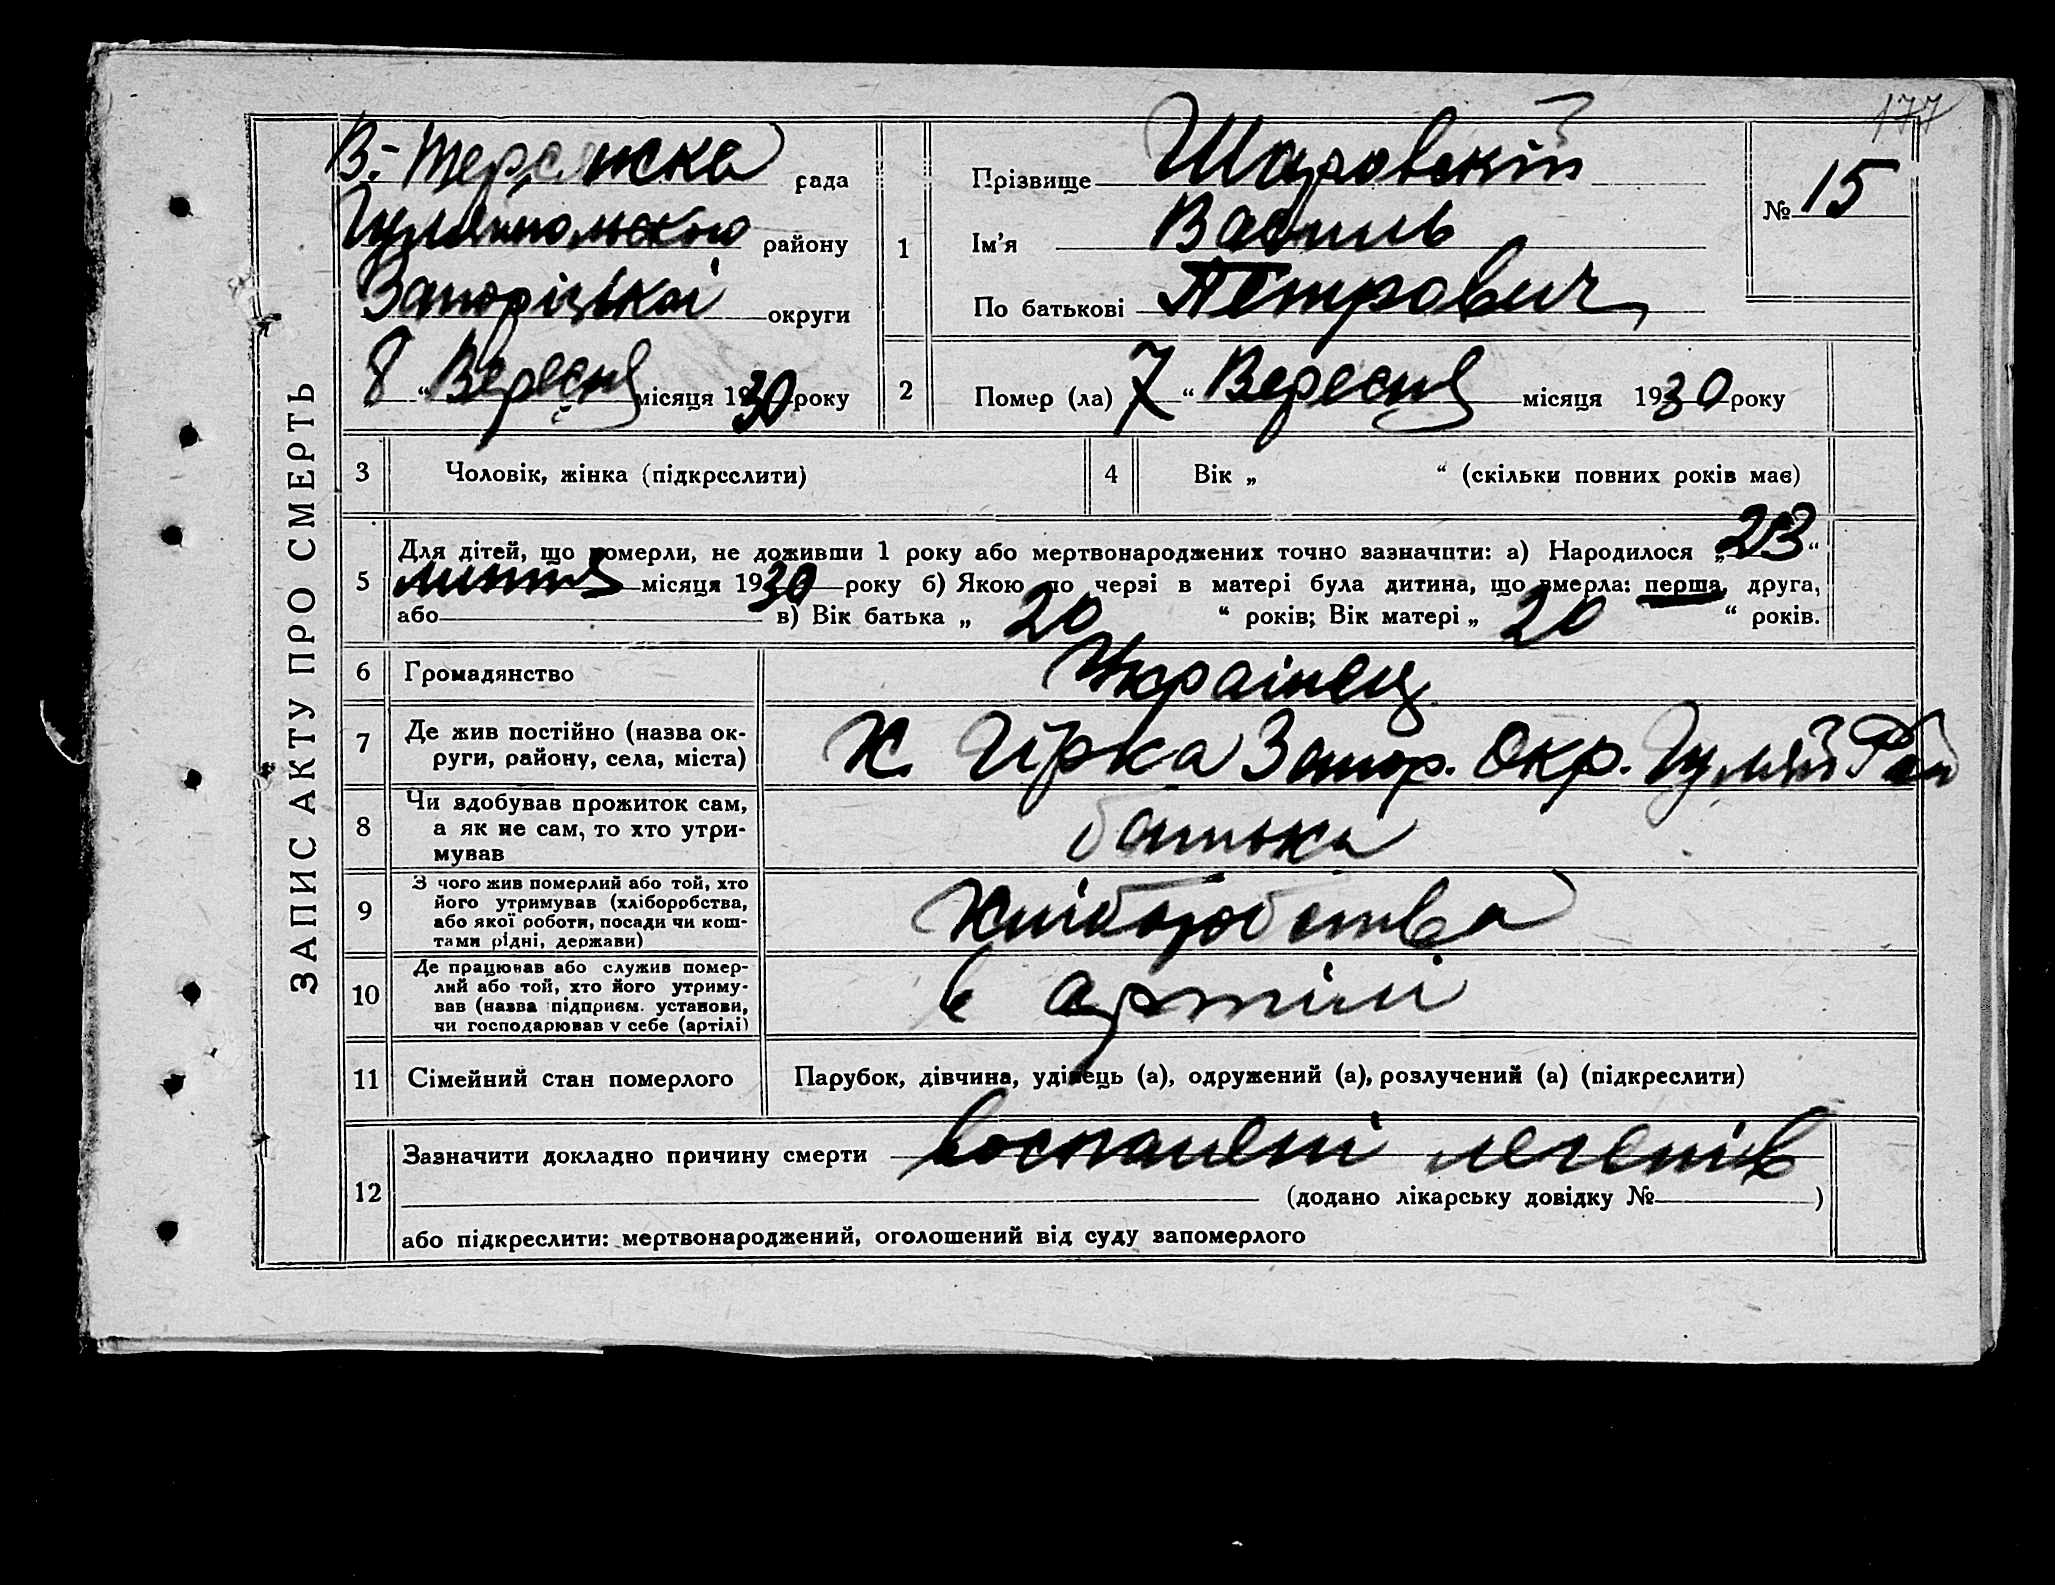 177
ЗАПИС АКТУ ПРО СМЕРТЬ
В.-Терсянска рада
Гуляйпольского району
Запоріцькоі округи
8 „ Вересня місяця 1930 року
1
Прізвище Шаровський
Ім’я Василь
По батькові Петрович
№ 15
2 Помер (ла) 7 “ Вересня місяця 1930 року
3 Чоловік, жінка (підкреслити)
4 Вік „ “ (скільки повних років має)
5 Для дітей, що померли, не доживши 1 року або мертвонароджених точно зазначити: а) Народилося „ 23 “
липня місяця 1930 року б) Якою по черзі в матері була дитина, що вмерла: перша, друга,
або в) Вік батька „ 20 “ років; Вік матері „ 20 “ років.
6 Громадянство Украінец
7 Де жив постійно (назва ок-
руги, району, села, міста)
Х. Гірка Запор. Окр. Гуляй Рай
8 Чи здобував прожиток сам,
а як не сам, то хто утри-
мував
батька
9 З чого жив померлий або той, хто
його утримував (хліборобства,
або якої роботи, посади чи кош-
тами рідні, держави)
Хліборобства
10 Де працював або служив помер-
лий або той, хто його утриму-
вав (назва підприєм. установи,
чи господарював у себе (артілі)
в артілі
11 Сімейний стан померлого Парубок, дівчина, удівець (а), одружений (а), розлучений (а) (підкреслити)
12 Зазначити докладно причину смерти воспалені легенів
(додано лікарську довідку № )
або підкреслити: мертвонароджений, оголошений від суду запомерлого